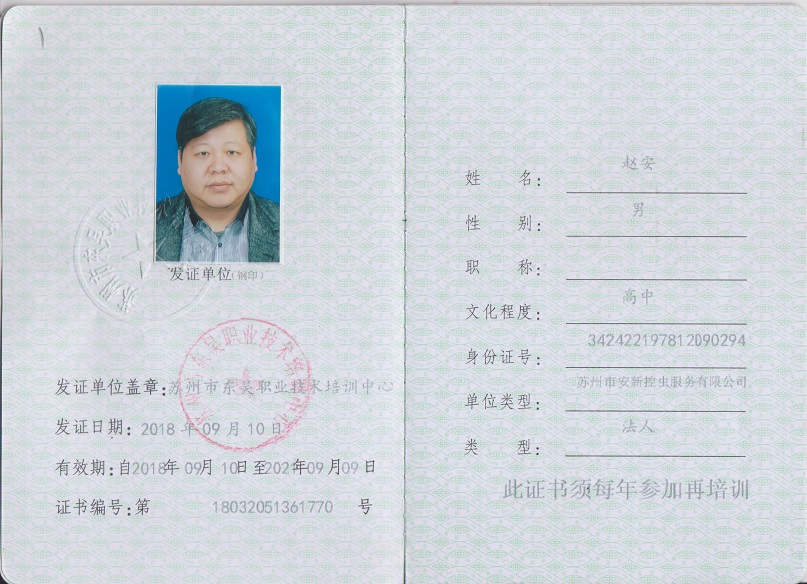 发证单位(钢印)
发证单位盖章:苏州市东吴职业技术培训中心
发证日期: 2018 年 09 月 10 日
有效期:自2018年 09月 10日至2021年09月09日
证书编号:第 18032051361770 号
姓 名: 赵安
性 别: 男
职 称:
文化程度: 高中
身份证号: 342422197812090294
单位类型: 苏州市安新控虫服务有限公司
类 型: 法人
此证书须每年参加再培训